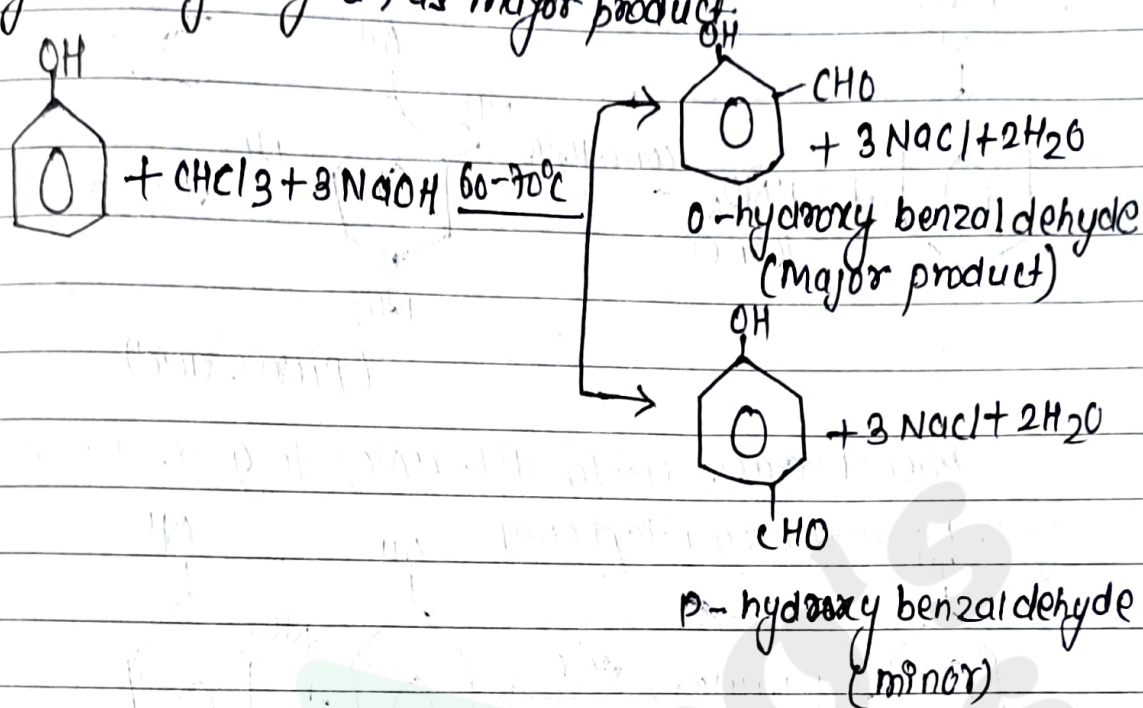 as major product.
OH
+ CHCl3 + 3 NaOH 60-70°C
OH
CHO
+ 3 NaCl + 2H2O
o-hydroxy benzaldehyde
(Major product)
OH
+ 3 NaCl + 2H2O
CHO
p- hydroxy benzaldehyde
(minor)